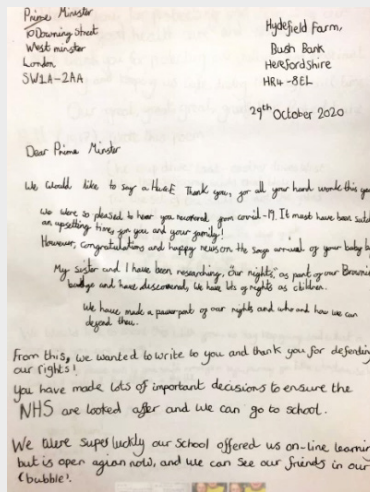 Prime Minister
10 Downing Street
West minster
London
SW1A-2AA
Hydefield Farm,
Bush Bank
Herefordshire
HR4-8EL
29th October 2020
Dear Prime Minster
We Would like to say a HUGE Thank you, for all your hard this year
We were so pleased to hear you recovered from covid-19. It must have been such
an upsetting time for you and your family!
However, congratulations and happy news on the safe arrival of your baby
My Sister and I have been researching, "Our rights", as part of our Brownie
badge and have discovered, we have lots of rights as children.
We have made a of our rights and who and how we can
defend them.
From this, we wanted to write to you and thank you for defending
our rights!
You have made lots of important decisions to ensure the
NHS are looked after and we can go to school.
We were super luckly our school offered us on-line learning
but is open agian now, and we can see our friends in our
'bubble'.